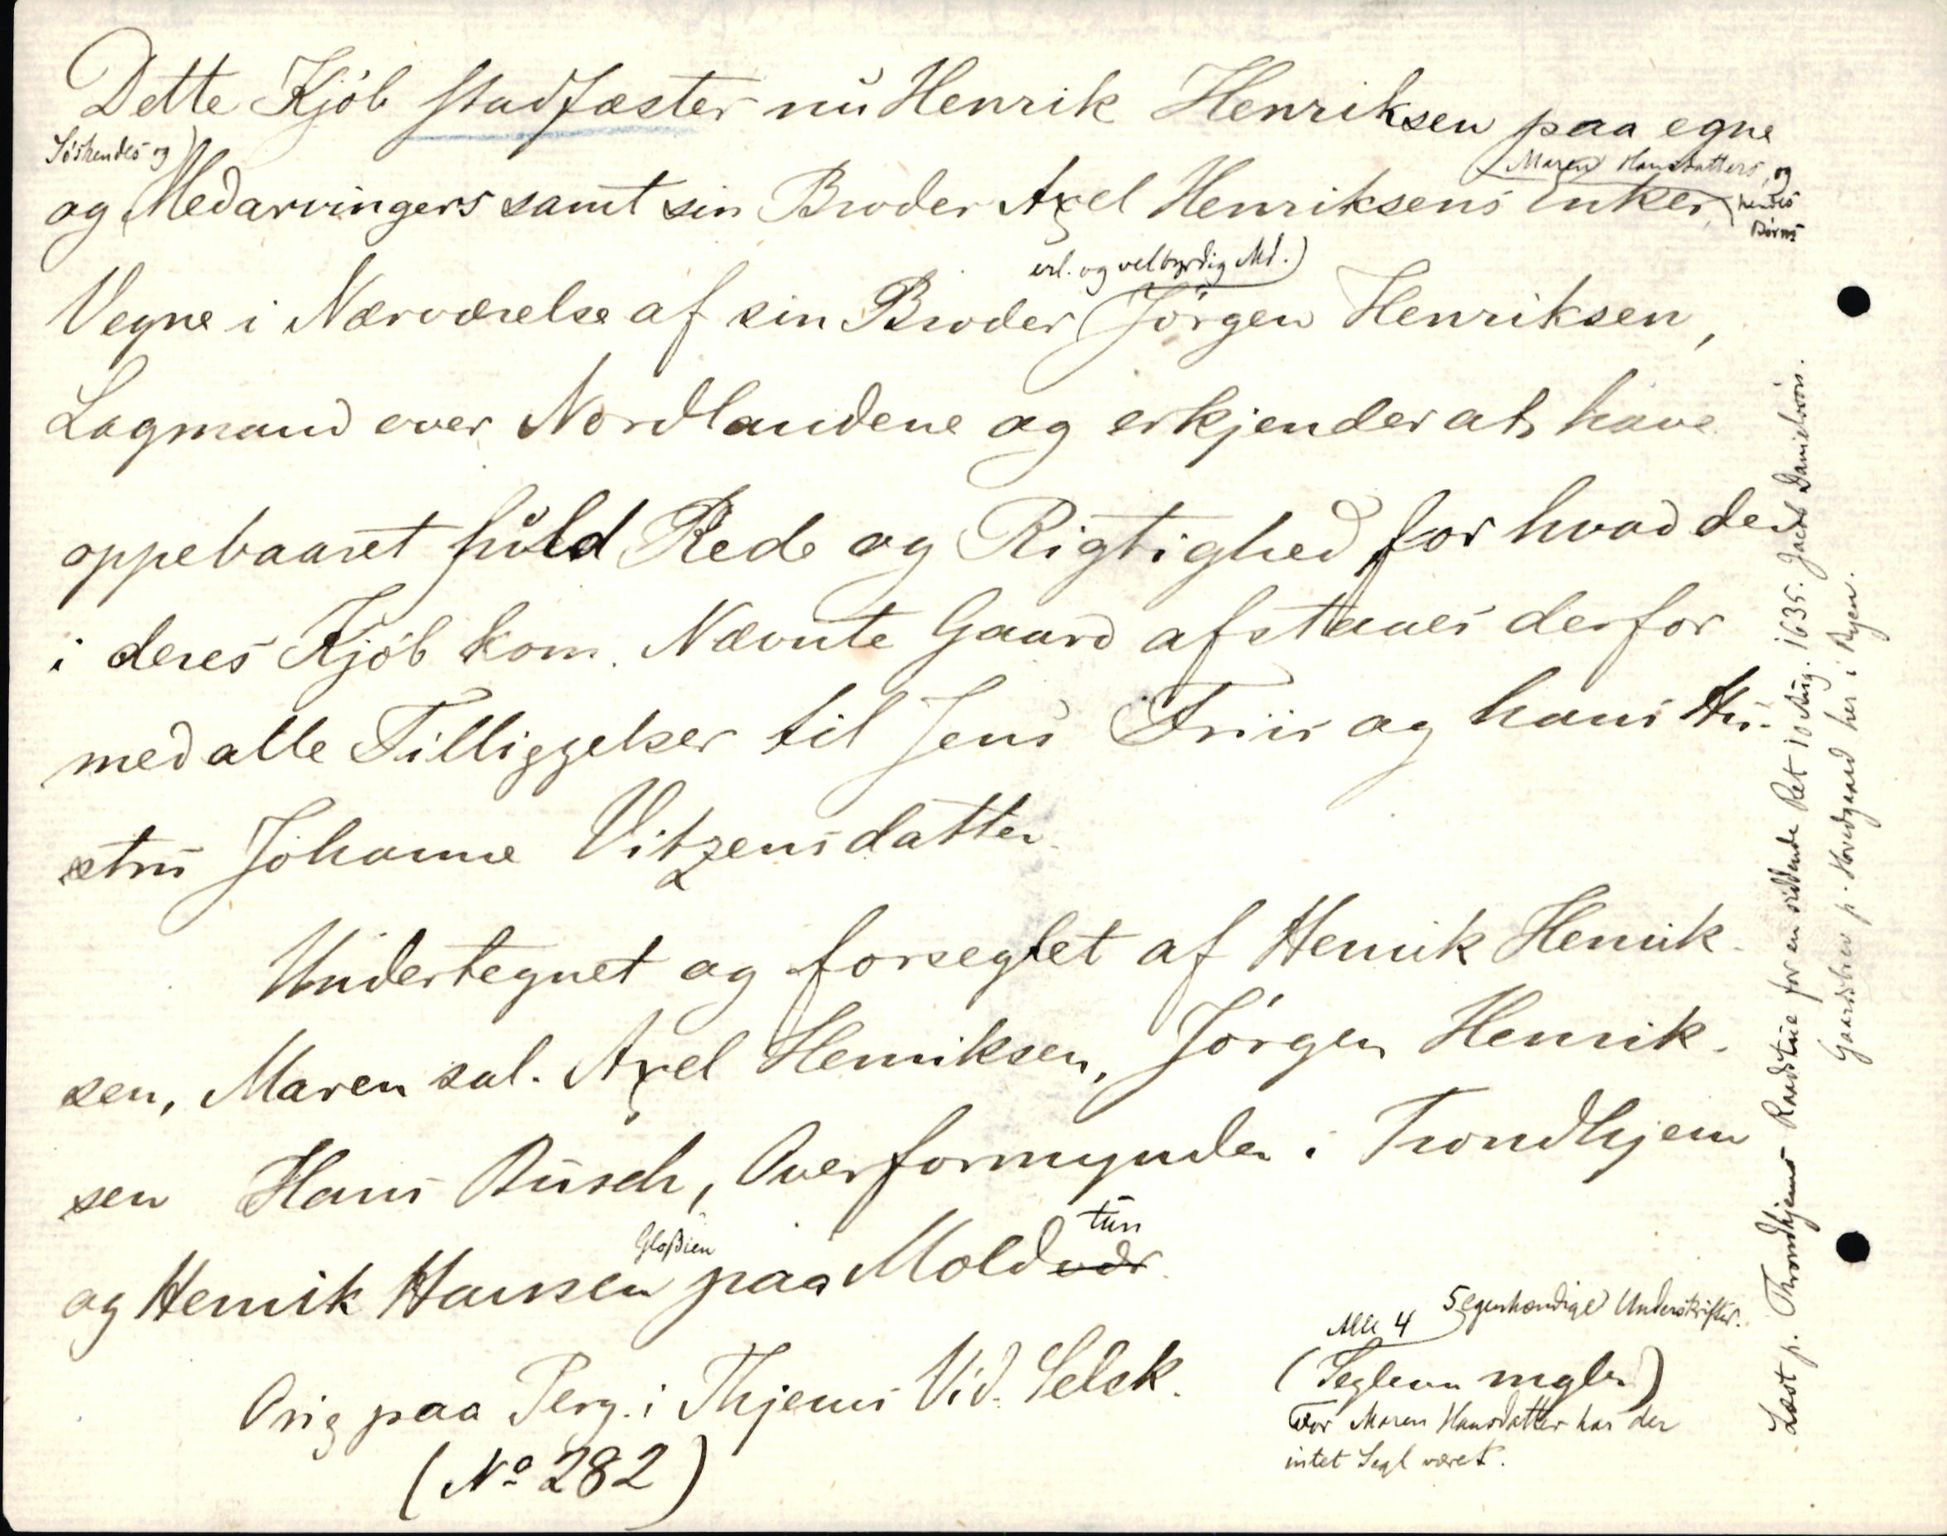 Dette Kjøb stadfæster nu Henrik Henriksen paa egne
Søskendes og
og Medarvingers samt sin Broder Axel Henriksens Enkes,
Maren Hansdatters, og
hendes
Børns
erl. og velbyrdig Md.)
Vegne i Nærværelse af sin Broder Jørgen Henriksen,
Lagmand over Nordlandene og erkjender at have
oppebaaret fuld Rede og Rigtighed for hvad der
i deres Kjøb kom. Nævnte Gaard afstaaes derfor
med alle Tilliggelser til Jens Friis og hans Hu-
stru Johanne Vitzensdatter
Undertegnet og forseglet af Henrik Henrik-
sen, Maren sal. Axel Henriksen, Jørgen Henrik-
sen Hans Busch, Overformynder i Trondhjem
og Henrik Hansen paa Moldvær
tun
Orig paa Perg. i Thjems Vid. Selsk.
(No 282)
Alle 4
5 egenhændige Underskrifter.
(Seglene mgler)
For Maren Hansdatter har der
intet Segl været.
Læst p. Throndhjems Raadstue for en siddende Ret 10 Aug. 1635. Jacob Danielssøn.
Gaardsbrev p. Hovedgaard her i Byen.